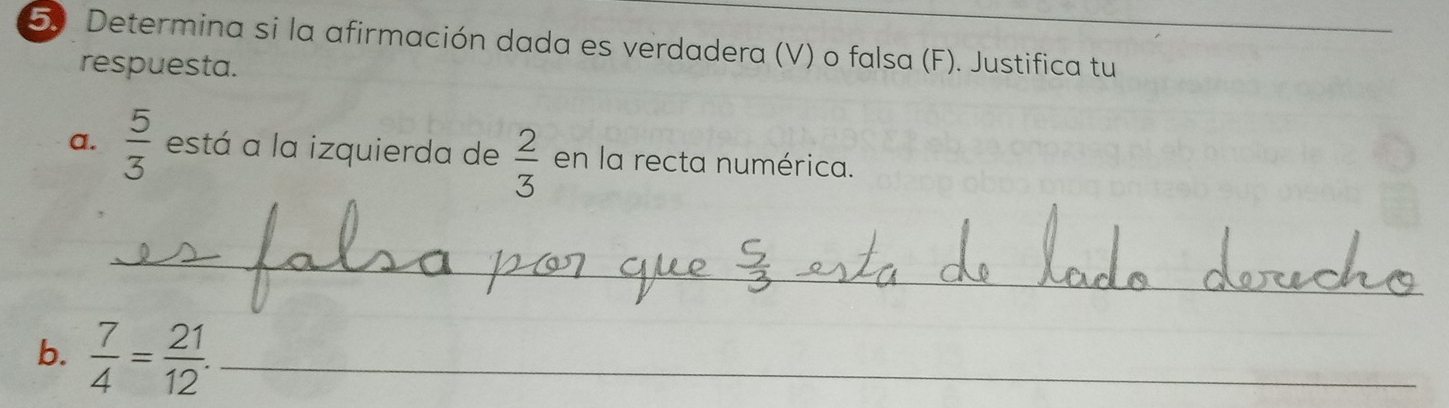 5. Determina si la afirmación dada es verdadera (V) o falsa (F). Justifica tu
respuesta.
a. 5/3 está a la izquierda de 2/3 en la recta numérica.
es falsa por que 5/3 esta de lado derecho
b. 7/4 = 21/12.